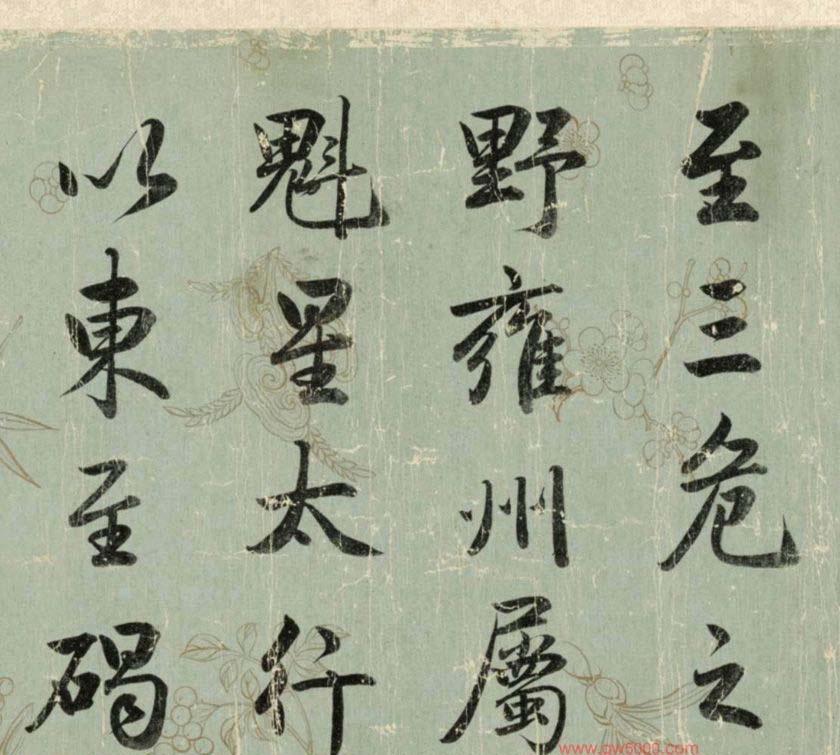 至三危之
野雍州屬
魁星太行
以東至碣
www.gw5000.com